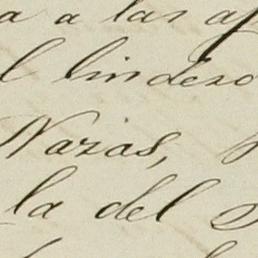 a a las
l lindero
Nazas,
la del